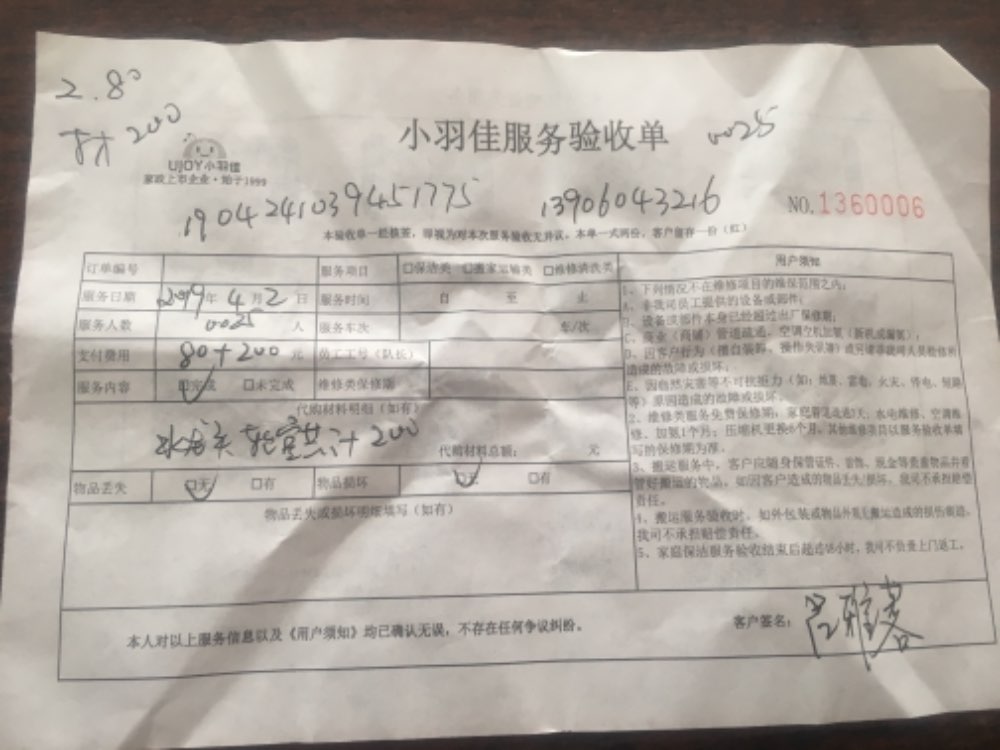 2.80
材200
小羽佳服务验收单
0025
UJOY小羽佳
家政上市企业·始于1999
190424103945177​5
13906043216
NO.1360006
本验收单一经核签，即视为对本次服务验收无异议。本单一式两份，客户留存一份（红）
订单编号
服务项目 □保洁类 □搬家运输类 □维修清洗类
服务日期 2019年4月2日
服务时间 自 至 止
服务人数 0025 人
服务车次 车/次
支付费用 80+200 元
员工工号（队长）
服务内容 ☑完成 □未完成
维修类保修期
代购材料明细（如有）
水龙头 共计200
代购材料总额： 元
物品丢失 ☑无 □有
物品损坏 ☑无 □有
物品丢失或损坏明细填写（如有）
用户须知
1、下列情况不在维修项目的维保范围之内：
A、非我司员工提供的设备或部件；
B、设备或部件本身已经超过出厂保修期；
C、商业（商铺）管道疏通，空调空机加氟（新机或漏氟）；
D、因客户行为（擅自装卸、操作失误等）或
造成的故障或损坏；
E、因自然灾害等不可抗拒力（如：地震、雷电、火灾、停电、短路
等）原因造成的故障或损坏。
2、维修类服务免费保修期：家庭管道疏通3天；水电维修、空调维
修、加氟1个月；压缩机更换6个月。其他维修项目以服务验收单填
写的保修期为准。
3、搬运服务中，客户应随身保管证件、首饰、现金等贵重物品并看
管好搬运的物品。如因客户造成的物品丢失/损坏，我司不承担赔偿
责任。
4、搬运服务验收时，如外包装或物品外观无搬运造成的损伤痕迹，
我司不承担赔偿责任。
5、家庭保洁服务验收结束后超过48小时，我司不负责上门返工。
本人对以上服务信息以及《用户须知》均已确认无误，不存在任何争议纠纷。
客户签名：